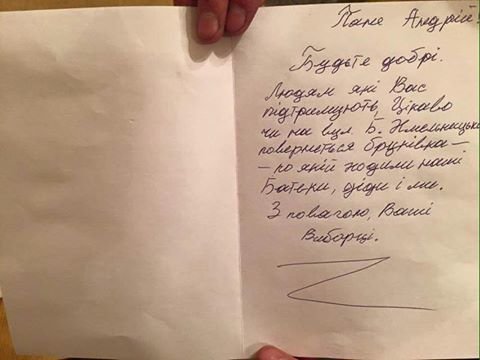 Пане Андрій!
Будьте добрі.
Людям які Вас
підтримують, Цікаво
чи на вул. Б. Хмельницько
повернеться бруківка –
– по якій ходили наші
Батьки, діди і ми.
З повагою, Ваші
Виборці.